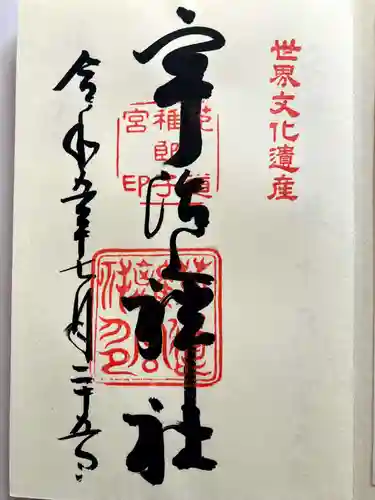 世界文化遺産
宇治上神社
菟道稚郎子宮印
令和五年七月二十五日